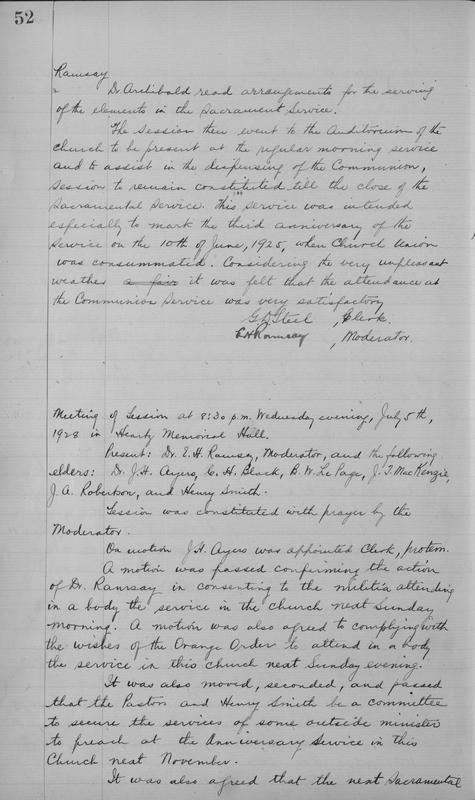 52
Ramsay
Dr. Archibald read arrangements for the serving
of the elements in the Sacrament Service.
The Session then went to the Auditorium of the
church to be present at the regular morning service
and to assist in the dispensing of the Communion,
Session to remain constituted till the close of the
Sacramental Service. This service was intended
especially to mark the third anniversary of the
Service on the 10th of June, 1925, when Church Union
was consummated. Considering the very unpleasant
weather a fair it was felt that the attendance at
the Communion Service was very satisfactory
G D Steel, Clerk.
E H Ramsay, Moderator.
Meeting of Session at 8:30 p.m. Wednesday evening, July 5th,
1928 in Heartz Memorial Hall.
Present: Dr. E. H. Ramsay, Moderator, and the following
elders: Dr. J. H. Ayers, C. H. Black, B. W. Le Page, J. T. MacKenzie,
J. A. Robertson, and Henry Smith.
Session was constituted with prayer by the
Moderator.
On motion J. H. Ayers was appointed Clerk, protem.
A motion was passed confirming the action
of Dr. Ramsay in consenting to the militia attending
in a body the service in the church next Sunday
morning. A motion was also agreed to complying with
the wishes of the Orange Order to attend in a body
the service in this church next Sunday evening.
It was also moved, seconded, and passed
that the Pastor and Henry Smith be a committee
to secure the services of some outside minister
to preach at the Anniversary Service in this
Church next November.
It was also agreed that the next Sacramental